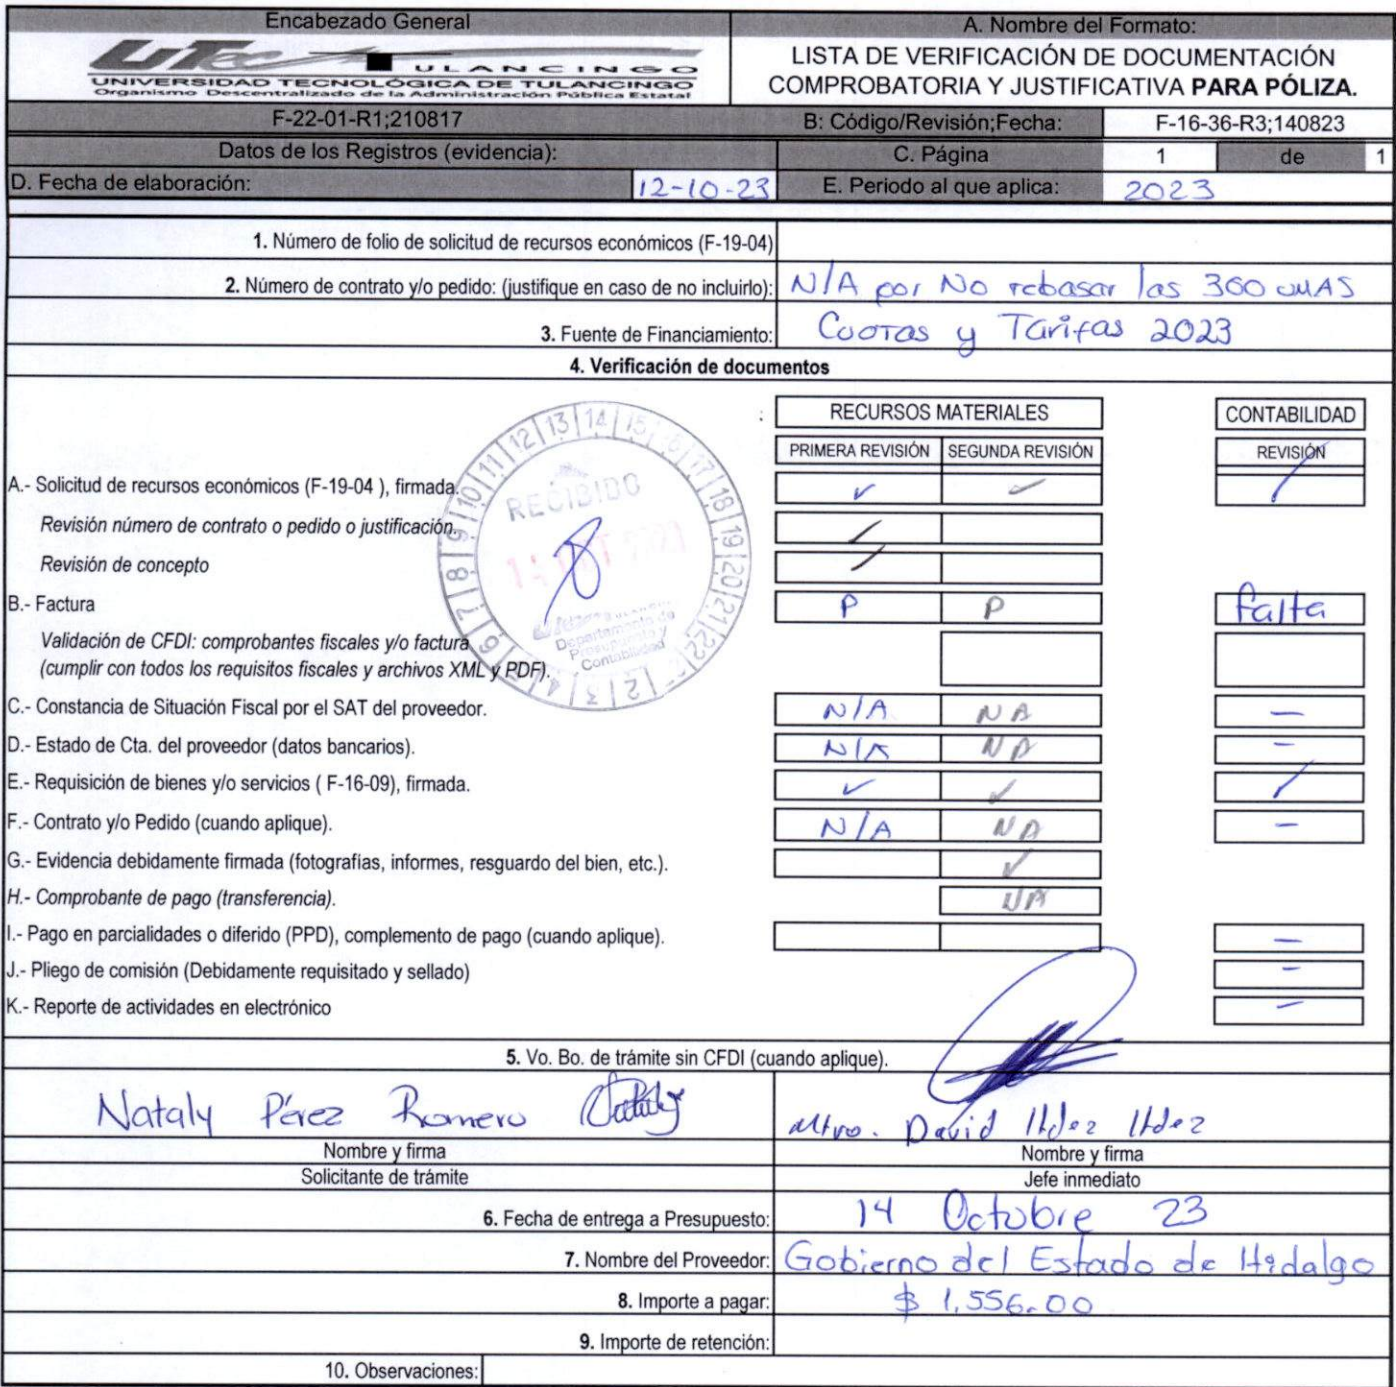 Encabezado General
A. Nombre del Formato:
UTec TULANCINGO
UNIVERSIDAD TECNOLÓGICA DE TULANCINGO
Organismo Descentralizado de la Administración Pública Estatal
LISTA DE VERIFICACIÓN DE DOCUMENTACIÓN
COMPROBATORIA Y JUSTIFICATIVA PARA PÓLIZA.
F-22-01-R1;210817
B: Código/Revisión;Fecha:
F-16-36-R3;140823
Datos de los Registros (evidencia):
C. Página 1 de 1
D. Fecha de elaboración: 12-10-23
E. Periodo al que aplica: 2023
1. Número de folio de solicitud de recursos económicos (F-19-04)
2. Número de contrato y/o pedido: (justifique en caso de no incluirlo): N/A por No rebasar las 300 UMAS
3. Fuente de Financiamiento: Cuotas y Tarifas 2023
4. Verificación de documentos
: RECURSOS MATERIALES CONTABILIDAD
PRIMERA REVISIÓN SEGUNDA REVISIÓN REVISIÓN
A.- Solicitud de recursos económicos (F-19-04 ), firmada. ✓ ✓ ✓
Revisión número de contrato o pedido o justificación. ✓
Revisión de concepto ✓
B.- Factura P P Falta
Validación de CFDI: comprobantes fiscales y/o factura
(cumplir con todos los requisitos fiscales y archivos XML y PDF).
C.- Constancia de Situación Fiscal por el SAT del proveedor. N/A NA —
D.- Estado de Cta. del proveedor (datos bancarios). N/A NA —
E.- Requisición de bienes y/o servicios ( F-16-09), firmada. ✓ ✓ ✓
F.- Contrato y/o Pedido (cuando aplique). N/A NA —
G.- Evidencia debidamente firmada (fotografías, informes, resguardo del bien, etc.). ✓
H.- Comprobante de pago (transferencia). NA
I.- Pago en parcialidades o diferido (PPD), complemento de pago (cuando aplique). —
J.- Pliego de comisión (Debidamente requisitado y sellado) —
K.- Reporte de actividades en electrónico —
RECIBIDO
Departamento de
Presupuesto y
Contabilidad
5. Vo. Bo. de trámite sin CFDI (cuando aplique).
Nataly Pérez Romero Nataly
Mtro. David Hdez Hdez
Nombre y firma
Solicitante de trámite
Nombre y firma
Jefe inmediato
6. Fecha de entrega a Presupuesto: 14 Octubre 23
7. Nombre del Proveedor: Gobierno del Estado de Hidalgo
8. Importe a pagar: $ 1,556.00
9. Importe de retención:
10. Observaciones: